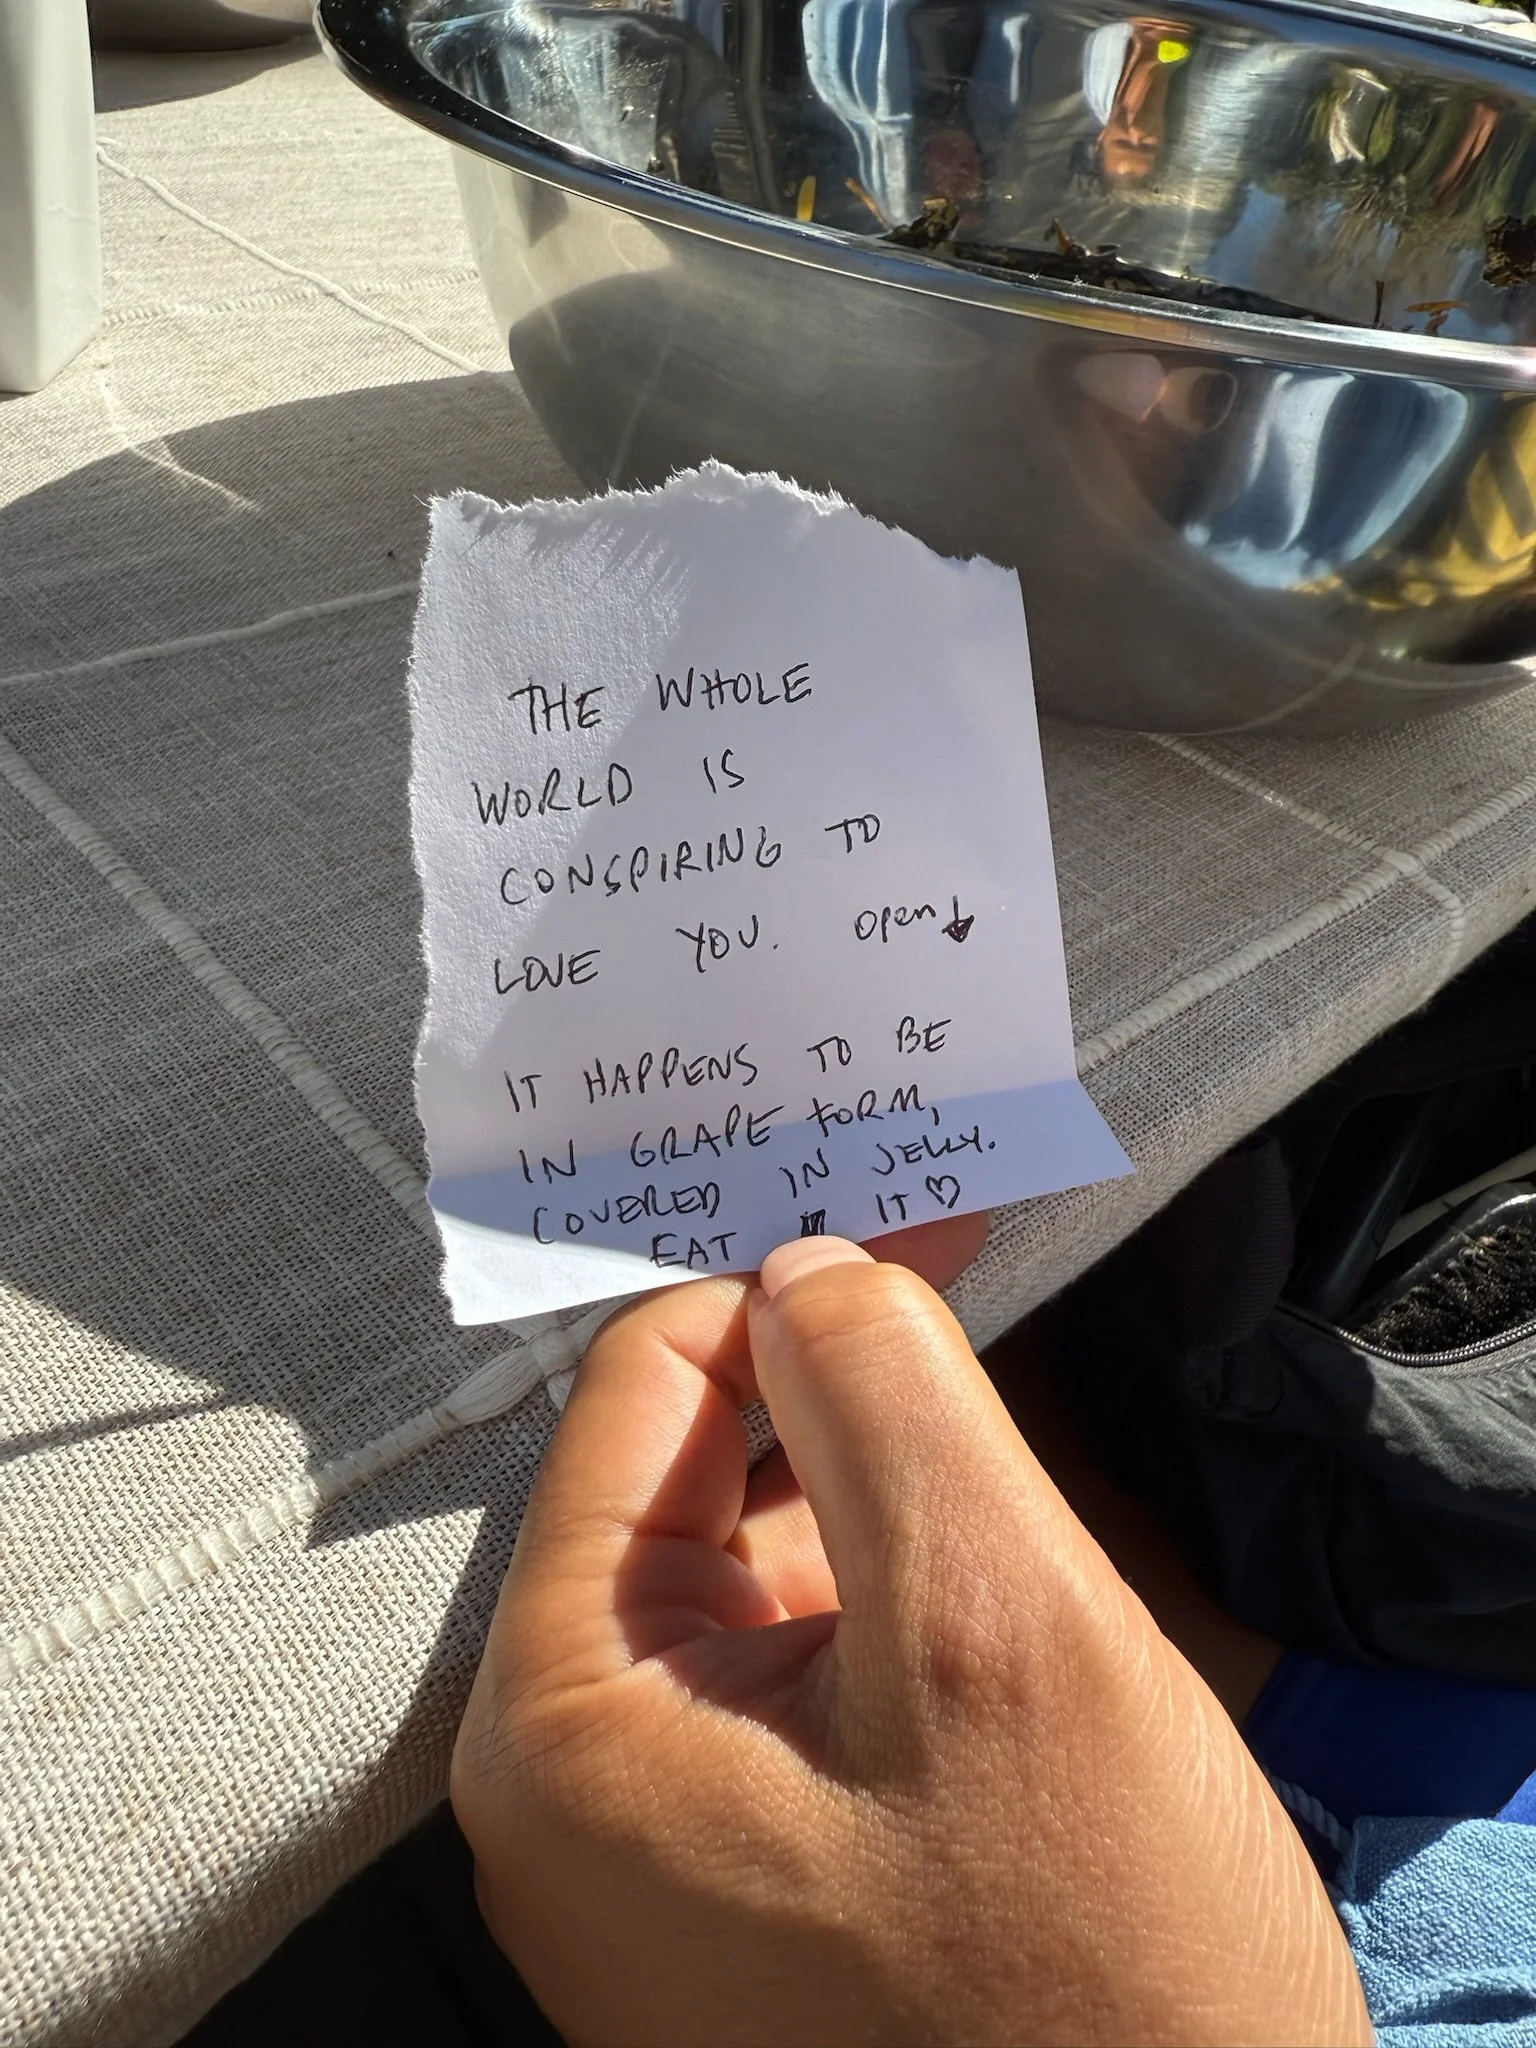 THE WHOLE
WORLD IS
CONSPIRING TO
LOVE YOU. Open
IT HAPPENS TO BE
IN GRAPE FORM,
COVERED IN JELLY.
EAT IT ♡